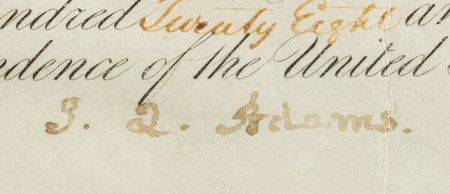 ndred Twenty Eight an
ndence of the United
J. Q. Adams.